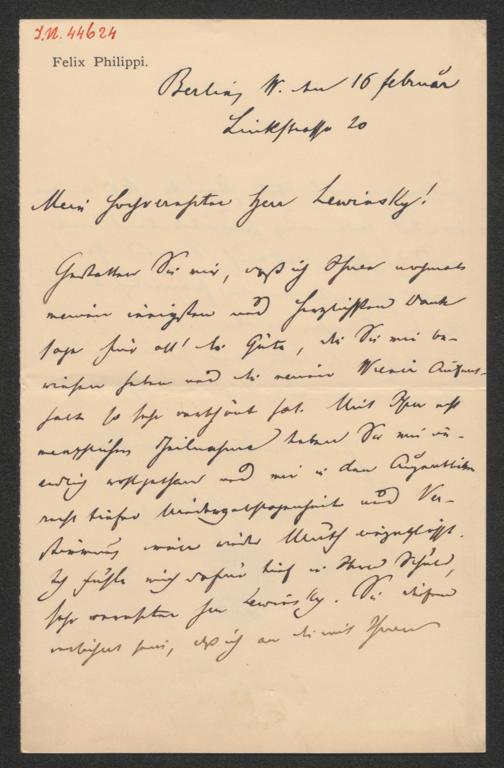 I.N. 44624
Felix Philippi.
Berlin, W. den 16 Februar
Linkstrasse 20
Mein hochverehrter Herr Lewinsky!
Gestatten Sie mir, daß ich Ihnen nochmals
meinen innigsten und herzlichsten Dank
sage für all' die Güte, die Sie mir be-
wiesen haben und die meinen Wiener Aufent-
halt so sehr verschönt hat. Mit Ihrer echt
menschlichen Theilnahme haben Sie mir un-
endlich wohlgethan und mir in den Augenblicken
recht tiefer Niedergeschlagenheit und Ver-
stimmung immer wieder Muth eingeflößt.
Ich fühle mich dafür tief in Ihrer Schuld,
sehr verehrter Herr Lewinsky. Sie dürfen
versichert sein, daß ich an die mit Ihnen